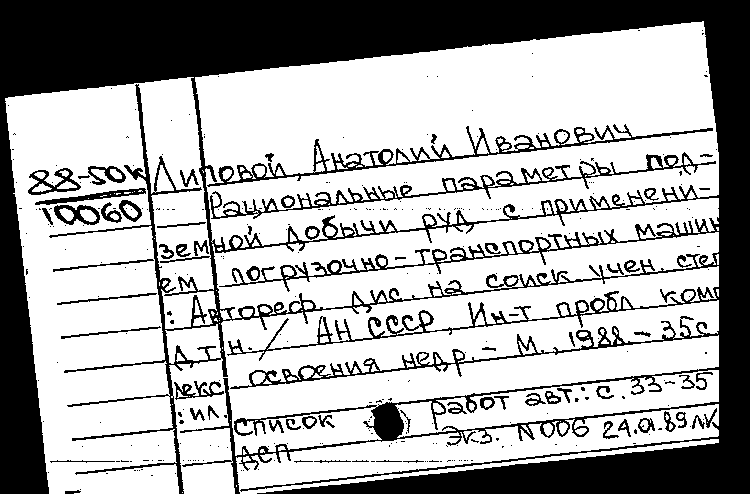 88-50к Липовой, Анатолий Иванович
10060 Рациональные параметры под-
земной добычи руд с применени-
ем погрузочно-транспортных машин
: Автореф. дис. на соиск учен. степ
д.т.н. / АН СССР, Ин-т пробл комп
лекс освоения недр. - М., 1988. - 35с.
: ил.
список работ авт.: с. 33-35
ДСП Экз. N006 24.01.89 ЛК